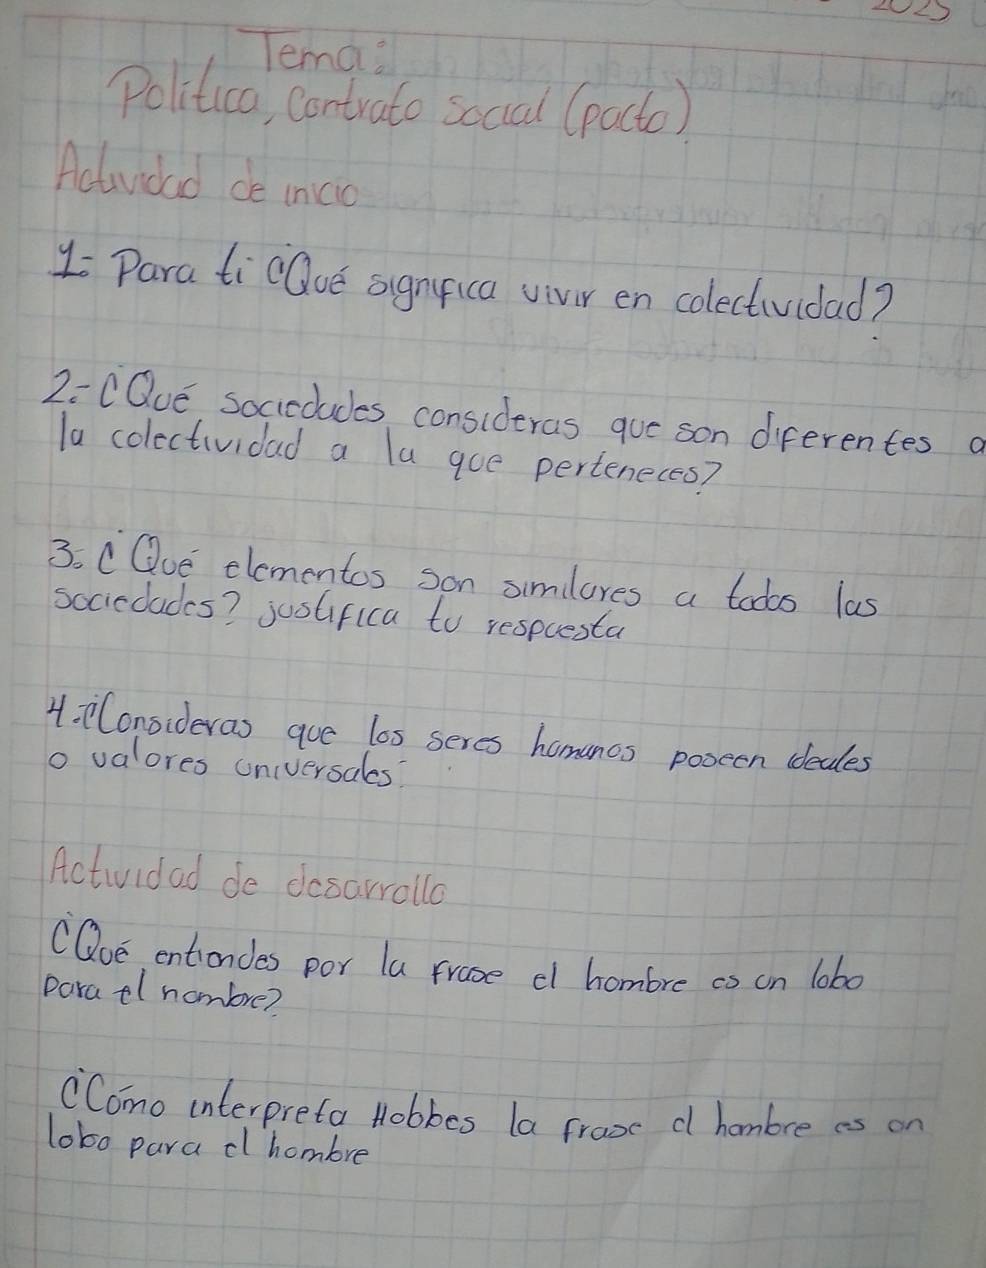 2025
Tema:
Politica, Contrato social (pacto)
Actividad de inicio
1.- Para ti ¿Qué significa vivir en colectividad?
2.- ¿Qué sociedades consideras que son diferentes a
la colectividad a la que perteneces?
3.- ¿Qué elementos son similares a todos las
sociedades? justifica tu respuesta
4.- ¿Consideras que los seres humanos poseen ideales
o valores universales?
Actividad de desarrollo
¿Qué entiendes por la frase el hombre es un lobo
para el hombre?
¿Cómo interpreta Hobbes la frase el hombre es un
lobo para el hombre